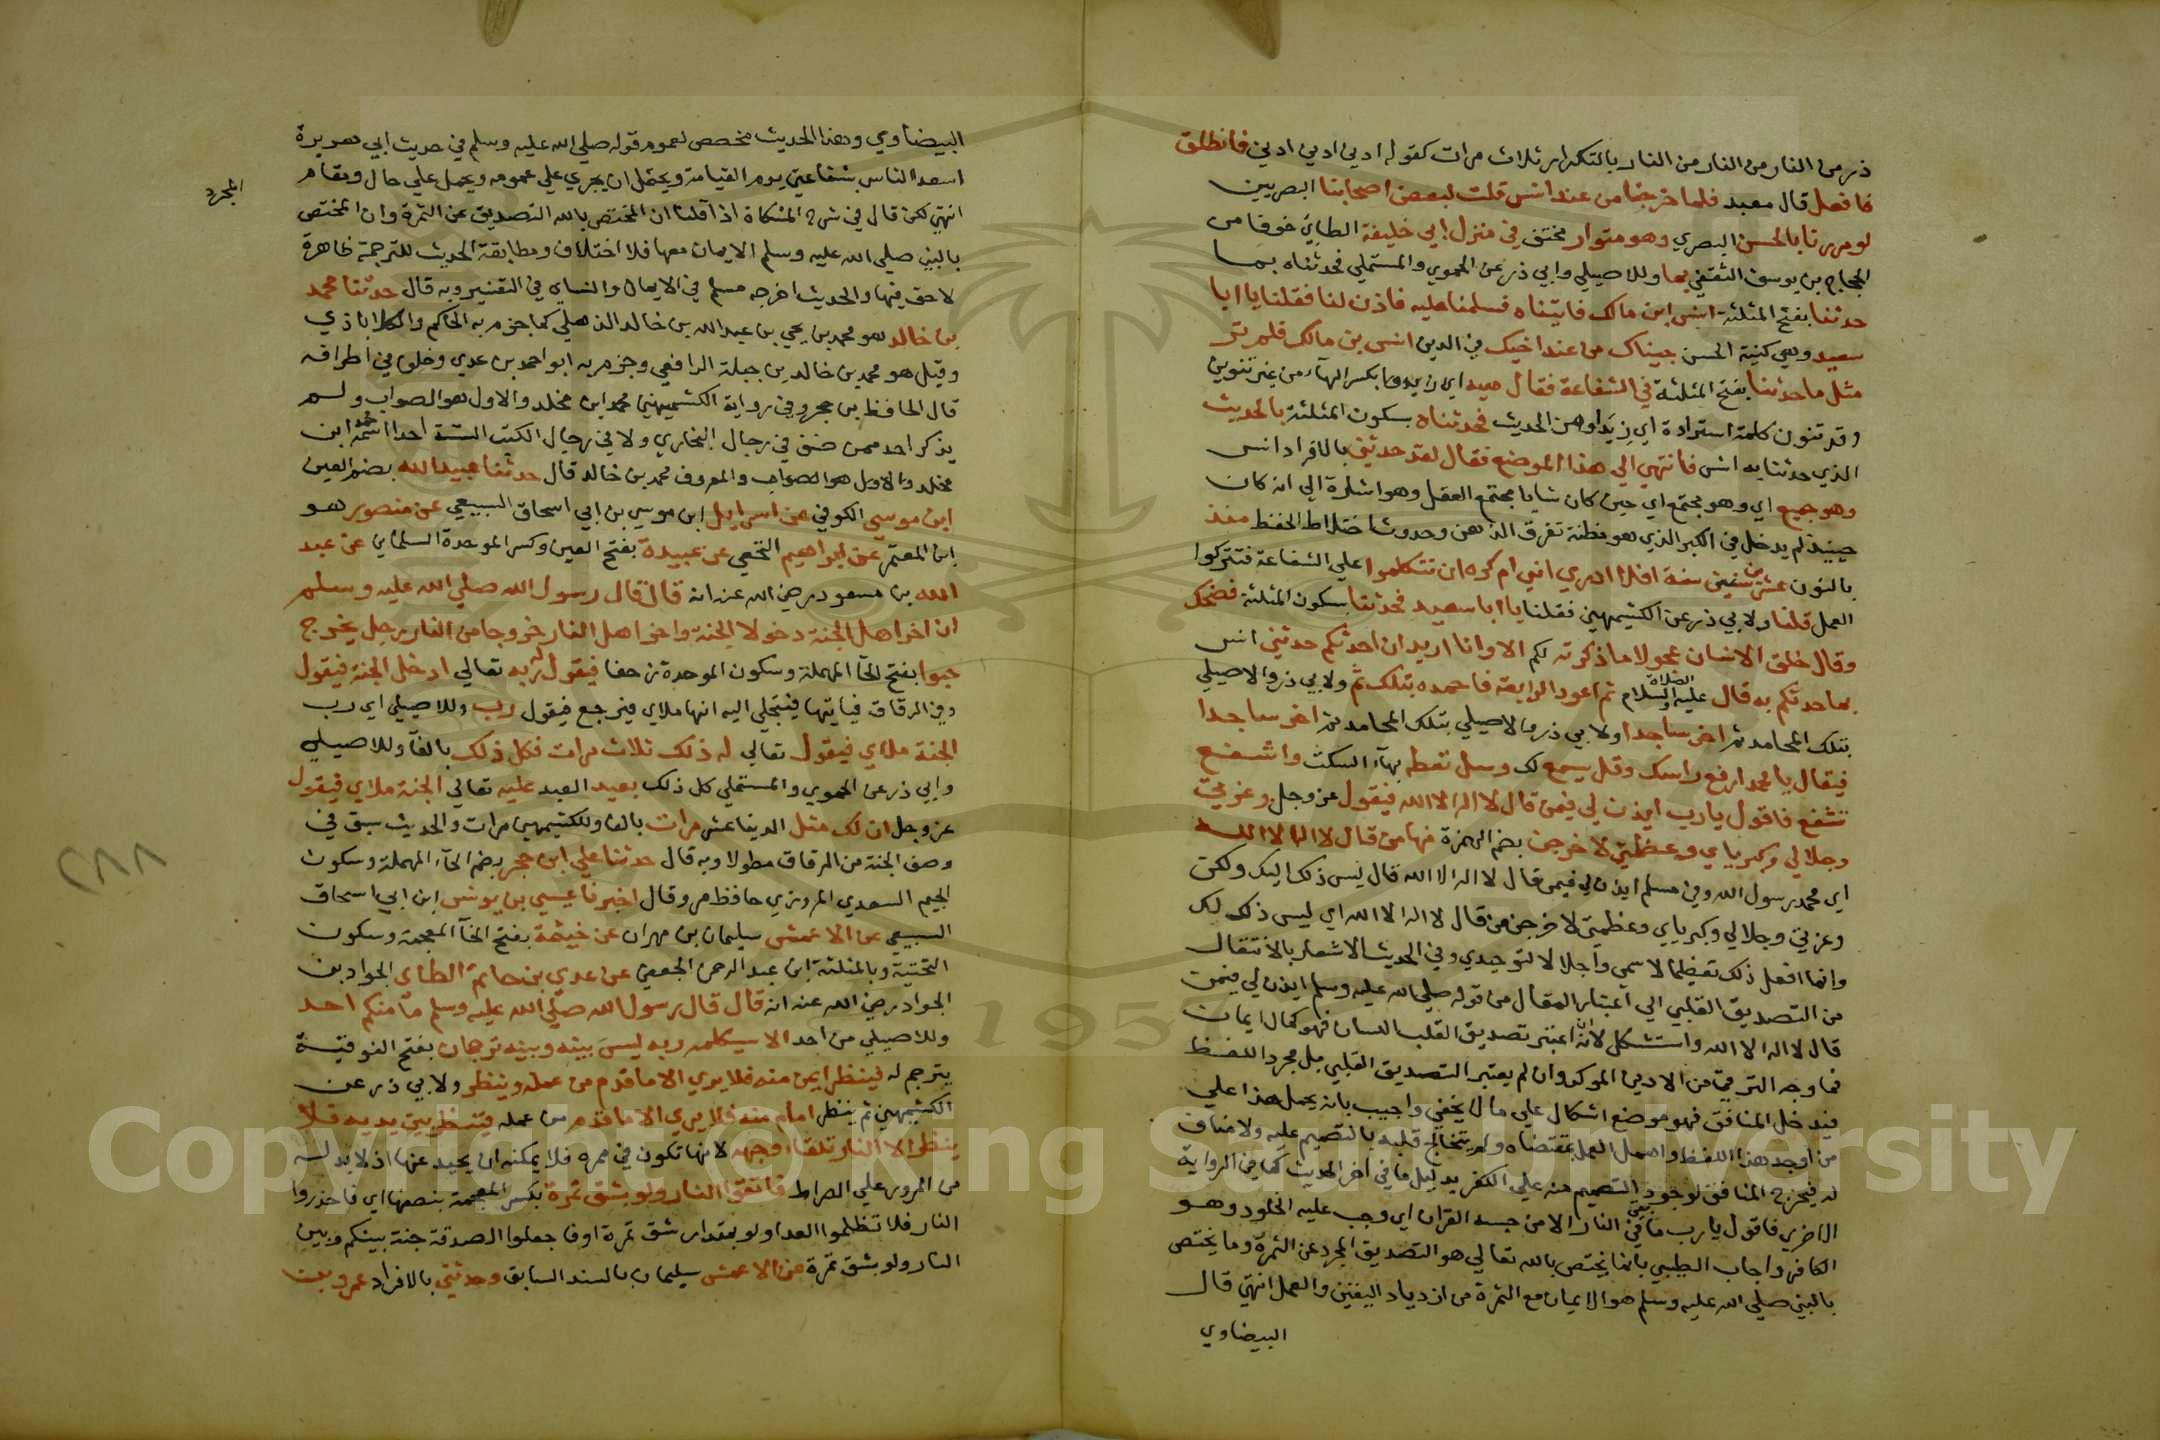 ذر من النار من النار من النار بالتكرار ثلاث مرات كقوله ادني ادني ادني فانطلق
فافعل قال معبد فلما خرجنا من عند انس قلت لبعض اصحابنا البصريين
لو مررنا بالحسن البصري وهو متوار مختف في منزل ابي خليفة الطايي خوفا من
الحجاج بن يوسف الثقفي بما وللاصيلي وابي ذر عن الحموي والمستملي فحدثناه بما
حدثنا بفتح المثلثة انس ابن مالك فاتيناه فسلمنا عليه فاذن لنا فقلنا يا ابا
سعيد وهي كنية الحسن جيناك من عند اخيك في الدين انس بن مالك فلم تر
مثل ما حدثنا بفتح المثلثة في الشفاعة فقال هيه اي زيدوا بكسر الهاء من غير تنوين
وقد تنون كلمة استزادة اي زيدوا من الحديث فحدثناه بسكون المثلثة بالحديث
الذي حدثنا به انس فانتهي الي هذا الموضع فقال لقد حدثني بالافراد انس
وهو جميع اي وهو مجتمع اي حين كان شابا مجتمع العقل وهو اشارة الي انه كان
حينيذ لم يدخل في الكبر الذي هو مظنة تفرق الذهن وحدوث اختلاط الحفظ منذ
بالنون عشرين سنة فلا ادري انسي ام كره ان تتكلموا علي الشفاعة فتتركوا
العمل قلنا ولابي ذر عن الكشميهني فقلنا يا ابا سعيد فحدثنا بسكون المثلثة فضحك
وقال خلق الانسان عجولا ما ذكرته لكم الا وانا اريد ان احدثكم حدثني انس
بما حدثكم به قال عليه الصلاة والسلام ثم اعود الرابعة فاحمده بتلك ثم ولابي ذر والاصيلي
بتلك المحامد ثم اخر ساجدا ولابي ذر والاصيلي بتلك المحامد ثم اخر ساجدا
فيقال يا محمد ارفع راسك وقل يسمع لك وسل تعطه بهاء السكت واشفع
تشفع فاقول يا رب ايذن لي فيمن قال لا اله الا الله فيقول عز وجل وعزتي
وجلالي وكبرياي وعظمتي لاخرجن بضم الهمزة منها من قال لا اله الا الله
اي محمد رسول الله وفي مسلم ايذن لي فيمن قال لا اله الا الله قال ليس ذلك اليك ولكن
وعزتي وجلالي وكبرياي وعظمتي لاخرجن من قال لا اله الا الله اي ليس ذلك لك
وانما افعل ذلك تعظيما لاسمي واجلالا لتوحيدي وفي الحديث الاشعار بالانتقال
من التصديق القلبي الي اعتبار المقال من قوله صلي الله عليه وسلم ايذن لي فيمن
قال لا اله الا الله واستشكل لانه ان اعتبر تصديق القلب اللسان فهو كمال ايمان
فما وجه الترقي من الادني الموكد وان لم يعتبر التصديق القلبي بل مجرد اللفظ
فيدخل المنافق فهو موضع اشكال علي ما لا يخفي واجيب بانه يحمل هذا علي
من اوجد هذا اللفظ واهمل العمل بمقتضاه ولم يتخالج قلبه بالتصميم عليه ولا مناف
له فيخرج المنافق لوجود التصميم منه علي الكفر بدليل ما في اخر الحديث كما في الرواية
الاخري فاقول يا رب ما بقي في النار الا من حبسه القران اي وجب عليه الخلود وهو
الكافر واجاب الطيبي بان ما يختص بالله تعالي هو التصديق المجرد عن الثمرة وما يختص
بالنبي صلي الله عليه وسلم هو الايمان مع الثمرة من ازدياد اليقين والعمل انتهي قال
البيضاوي
البيضاوي وهذا الحديث مخصص لعموم قوله صلي الله عليه وسلم في حديث ابي هريرة
اسعد الناس بشفاعتي يوم القيامة ويحتمل ان يجري علي عمومه ويحمل علي حال ومقام
انتهي لكن قال في شرح المشكاة اذا قلنا ان المختص بالله التصديق عن الثمرة وان المختص
المجرد
بالنبي صلي الله عليه وسلم الايمان معها فلا اختلاف ومطابقة الحديث للترجمة ظاهرة
لاخف فيها والحديث اخرجه مسلم في الايمان والنساي في التفسير وبه قال حدثنا محمد
بن خالد هو محمد بن يحيي بن عبد الله بن خالد الذهلي كما جزم به الحاكم والكلاباذي
وقيل هو محمد بن خالد بن جبلة الرافعي وجزم به ابو احمد بن عدي وخلف في اطرافه
قال الحافظ بن حجر وفي رواية الكشميهني محمد ابن مخلد والاول هو الصواب ولم
يذكر احد ممن صنف في رجال البخاري ولا في رجال الكتب الستة احدا اسمه محمد ابن
مخلد والاول هو الصواب والمعروف محمد بن خالد قال حدثنا عبيد الله بضم العين
ابن موسي الكوفي عن اسراييل ابن موسي بن ابي اسحاق السبيعي عن منصور هو
ابن المعتمر عن ابراهيم النخعي عن عبيدة بفتح العين وكسر الموحدة السلماني عن عبد
الله بن مسعود رضي الله عنه انه قال قال رسول الله صلي الله عليه وسلم
ان اخر اهل الجنة دخولا الجنة واخر اهل النار خروجا من النار رجل يخرج
حبوا بفتح الحا المهملة وسكون الموحدة زحفا فيقول له ربه تعالي ادخل الجنة فيقول
وفي الرقاق فياتيها فيتخيل اليه انها ملاي فيرجع فيقول رب وللاصيلي اي رب
الجنة ملاي فيقول تعالي له ذلك ثلاث مرات فكل ذلك بالفا وللاصيلي
وابي ذر عن الحموي والمستملي كل ذلك يعيد العبد عليه تعالي الجنة ملاي فيقول
عز وجل ان لك مثل الدنيا عشر مرات بالفا وللكشميهني مرات والحديث سبق في
وصف الجنة من الرقاق مطولا وبه قال حدثنا علي ابن حجر بضم الحاء المهملة وسكون
الجيم السعدي المروزي حافظ مرو قال اخبرنا عيسي بن يونس ابن ابي اسحاق
السبيعي عن الاعمش سليمان بن مهران عن خيثمة بفتح الخا المعجمة وسكون
التحتية وبالمثلثة ابن عبد الرحمن الجعفي عن عدي بن حاتم الطاي الجواد بن
الجواد رضي الله عنه انه قال قال رسول الله صلي الله عليه وسلم ما منكم احد
وللاصيلي من احد الا سيكلمه ربه ليس بينه وبينه ترجمان بفتح الفوقية
يترجم له فينظر ايمن منه فلا يري الا ما قدم من عمله وينظر ولابي ذر عن
الكشميهني ثم ينظر امام منه فلا يري الا ما قدم من عمله فينظر بين يديه فلا
ينظر الا النار تلقاء وجهه لانها تكون في ممره فلا يمكنه ان يحيد عنها اذ لا بد له
من المرور علي الصراط فاتقوا النار ولو بشق تمرة بكسر المعجمة بنصفها اي فاحذروا
النار فلا تظلموا احدا ولو بمقدار شق تمرة او فاجعلوا الصدقة جنة بينكم وبين
النار ولو بشق تمرة عن الاعمش سليمان بالسند السابق وحدثني بالافراد عمرو بن
٢٨٨
1957
Copyright © King Saud University